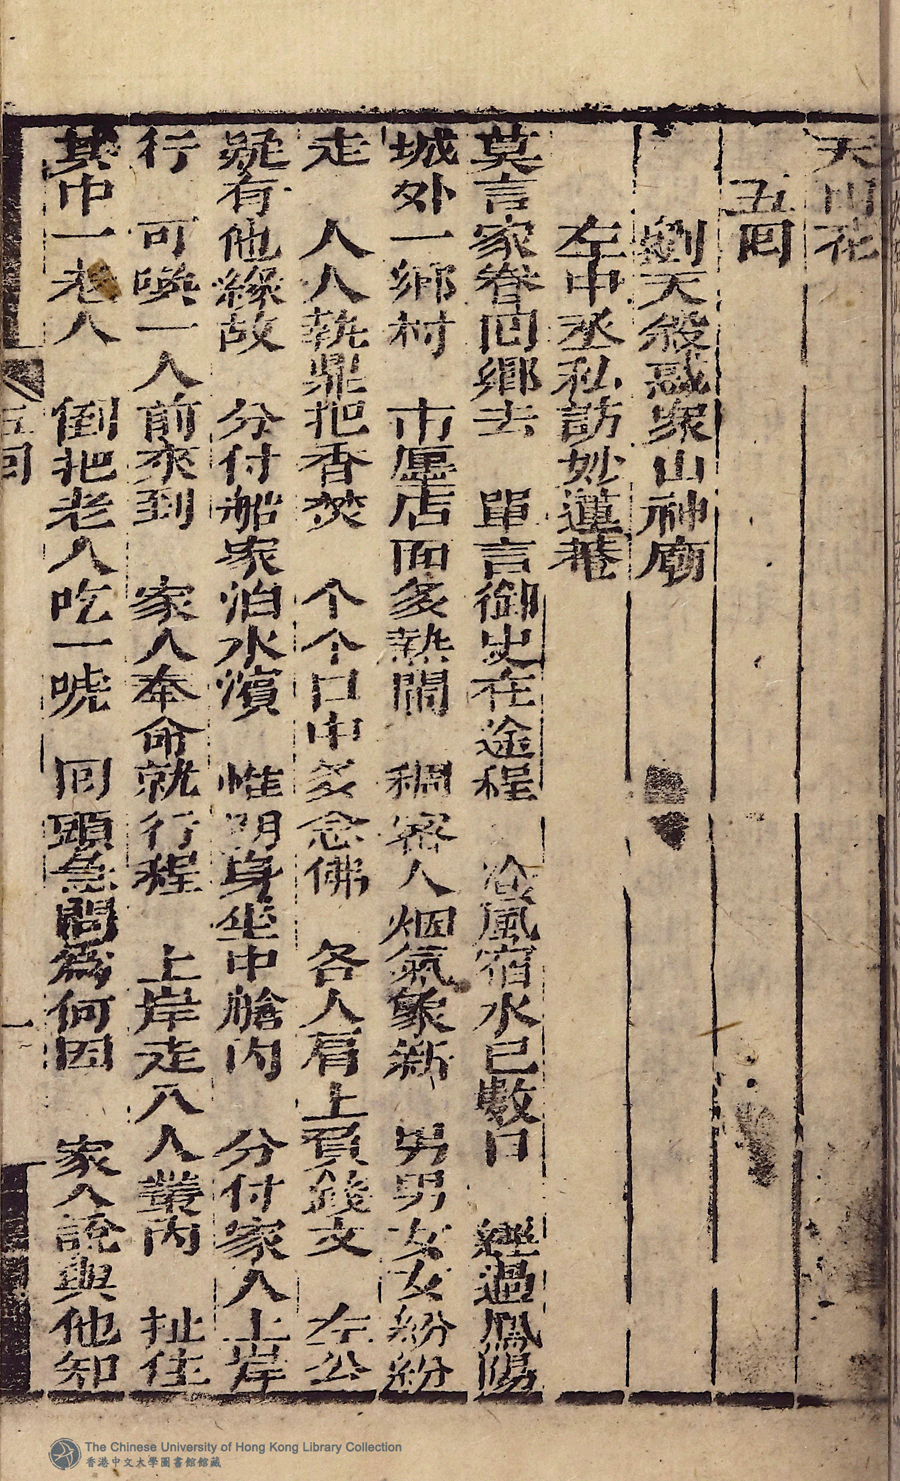 天雨花
五回
劉天殺惑衆山神廟
左中丞私訪妙蓮菴
莫言家眷囬鄉去 單言御史在途程 飡風宿水已數日 經過鳯陽
城外一鄉村 市廛店面多熱閙 稠密人烟氣象新 男男女女紛紛
走 人人執鼎把香焚 个个口中多念佛 各人肩上負錢文 左公
疑有他緣故 分付船家泊水濱 惟朋身坐中艙内 分付家人上岸
行 可喚一人前來到 家人奉命就行程 上岸走入人叢内 扯住
其中一老人 倒把老人吃一唬 囘頭急問爲何因 家人說與他知
五囘
一
The Chinese University of Hong Kong Library Collection
香港中文大學圖書館館藏